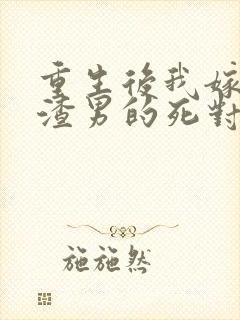 重生後我嫁
渣男的死對
施施然